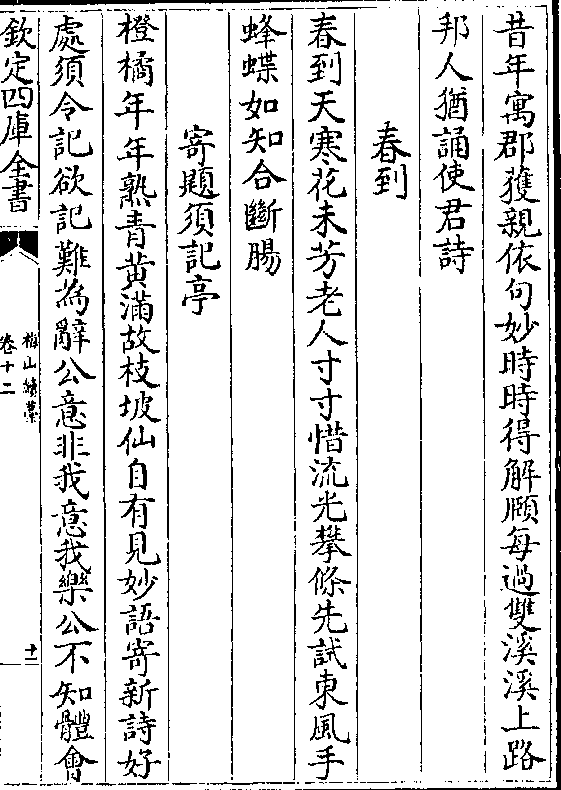 昔年寓郡獲親依句妙時時得解頤每過雙溪溪上路
邦人猶誦使君詩
春到
春到天寒花未芳老人寸寸惜流光攀條先試東風手
蜂蝶如知合斷腸
寄題須記亭
橙橘年年熟青黄滿故枝坡仙自有見妙語寄新詩好
處須令記欲記難為辭公意非我意我樂公不知體會
欽定四庫全書
梅山續藁
卷十二
十一